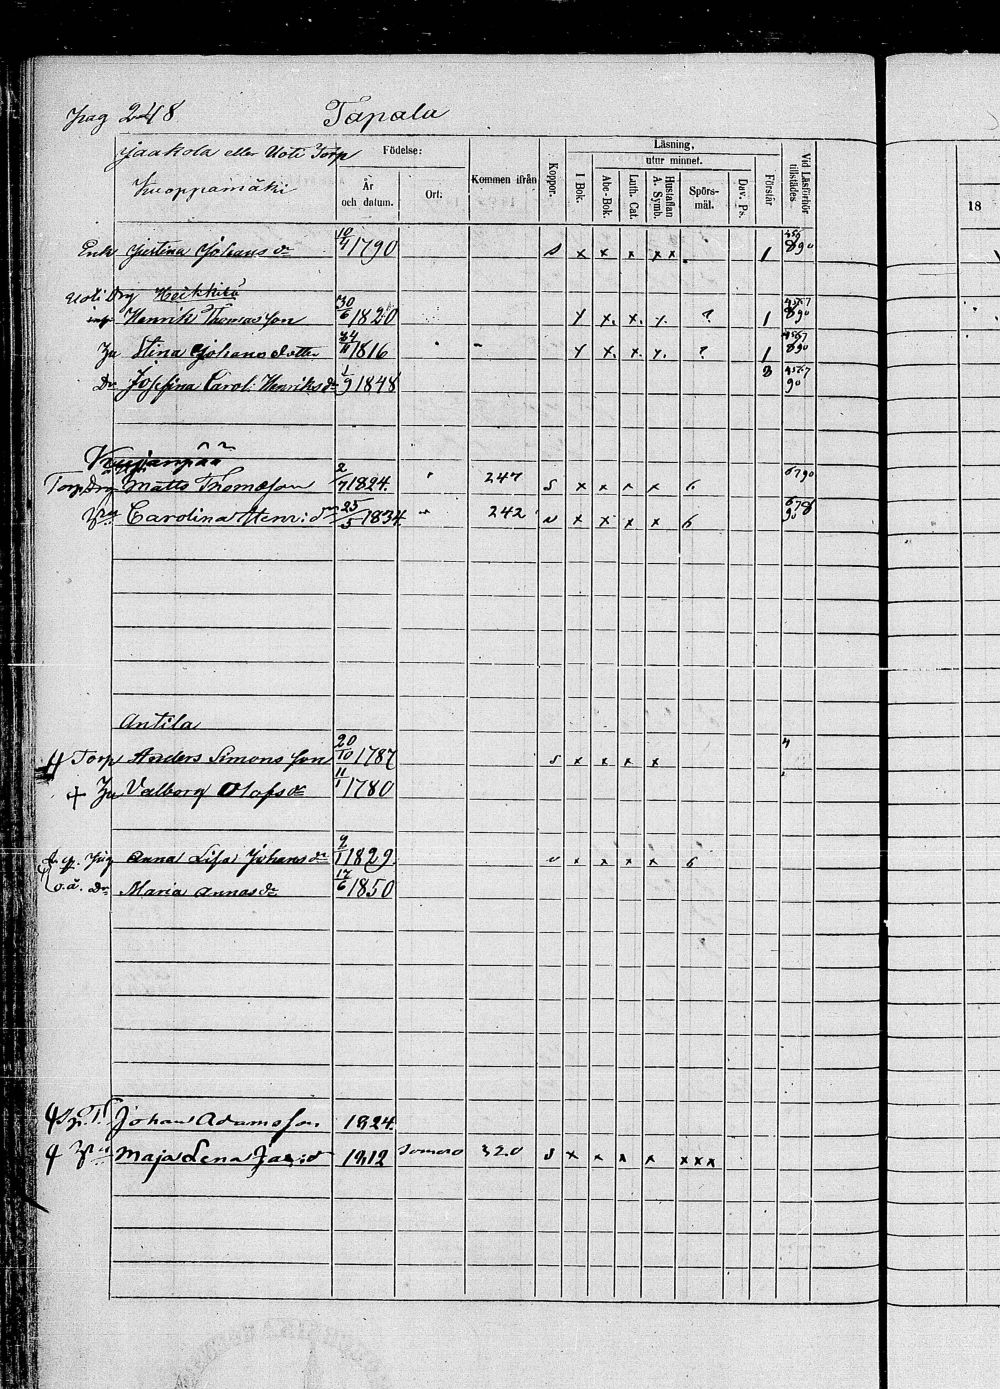 Pag 248 Tapala
Jaakola eller Uoti Torp
Kuoppamäki
Födelse:
År och datum.
Ort:
Kommen ifrån
Koppor.
Läsning,
utur minnet.
I Bok.
Abc-Bok.
Luth. Cat.
Hustaflan A. Symb.
Spörs-mål.
Dav. Ps.
Förstår
Vid Läsförhör tillstädes
18
Enk Justina Johans dr 10/4 1790 s x x x x x 1
Uoti Drg Heikkilä
Henrik Thomasson 30/6 1820 y x. x. y. ? 1
Hu Stina Johansdotter 1816 y x. x. y. ? 1
Dr Josefina Carol. Henriksdr 1/9 1848 3
Kujanpää
Torp Drg Matts Thomasson 2/7 1824. " 247 s x x x x 6
Carolina Henr: dr 25/5 1834 " 242 v x x x x 6
Antila
Torp Anders Simonsson 20/10 1787 s x x x x 4
† Hu Valborg Olofs dr 11/1 1780
Pig Anna Lisa Johans dr 1829. v x x x x 6
o.ä. Dr Maria Annas dr 17/6 1850
Johan Adamsson 1824.
Maja Lena Jac: d 1812 Somero 320 s x x x x x x x